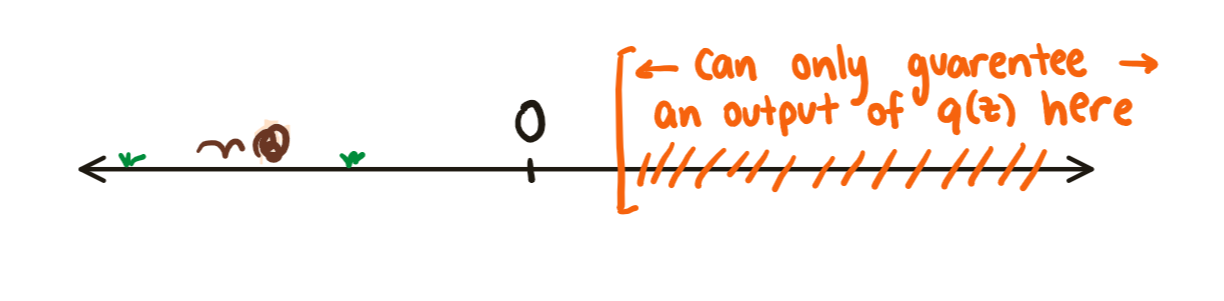 ← Can only guarentee →
an output of q(z) here
0